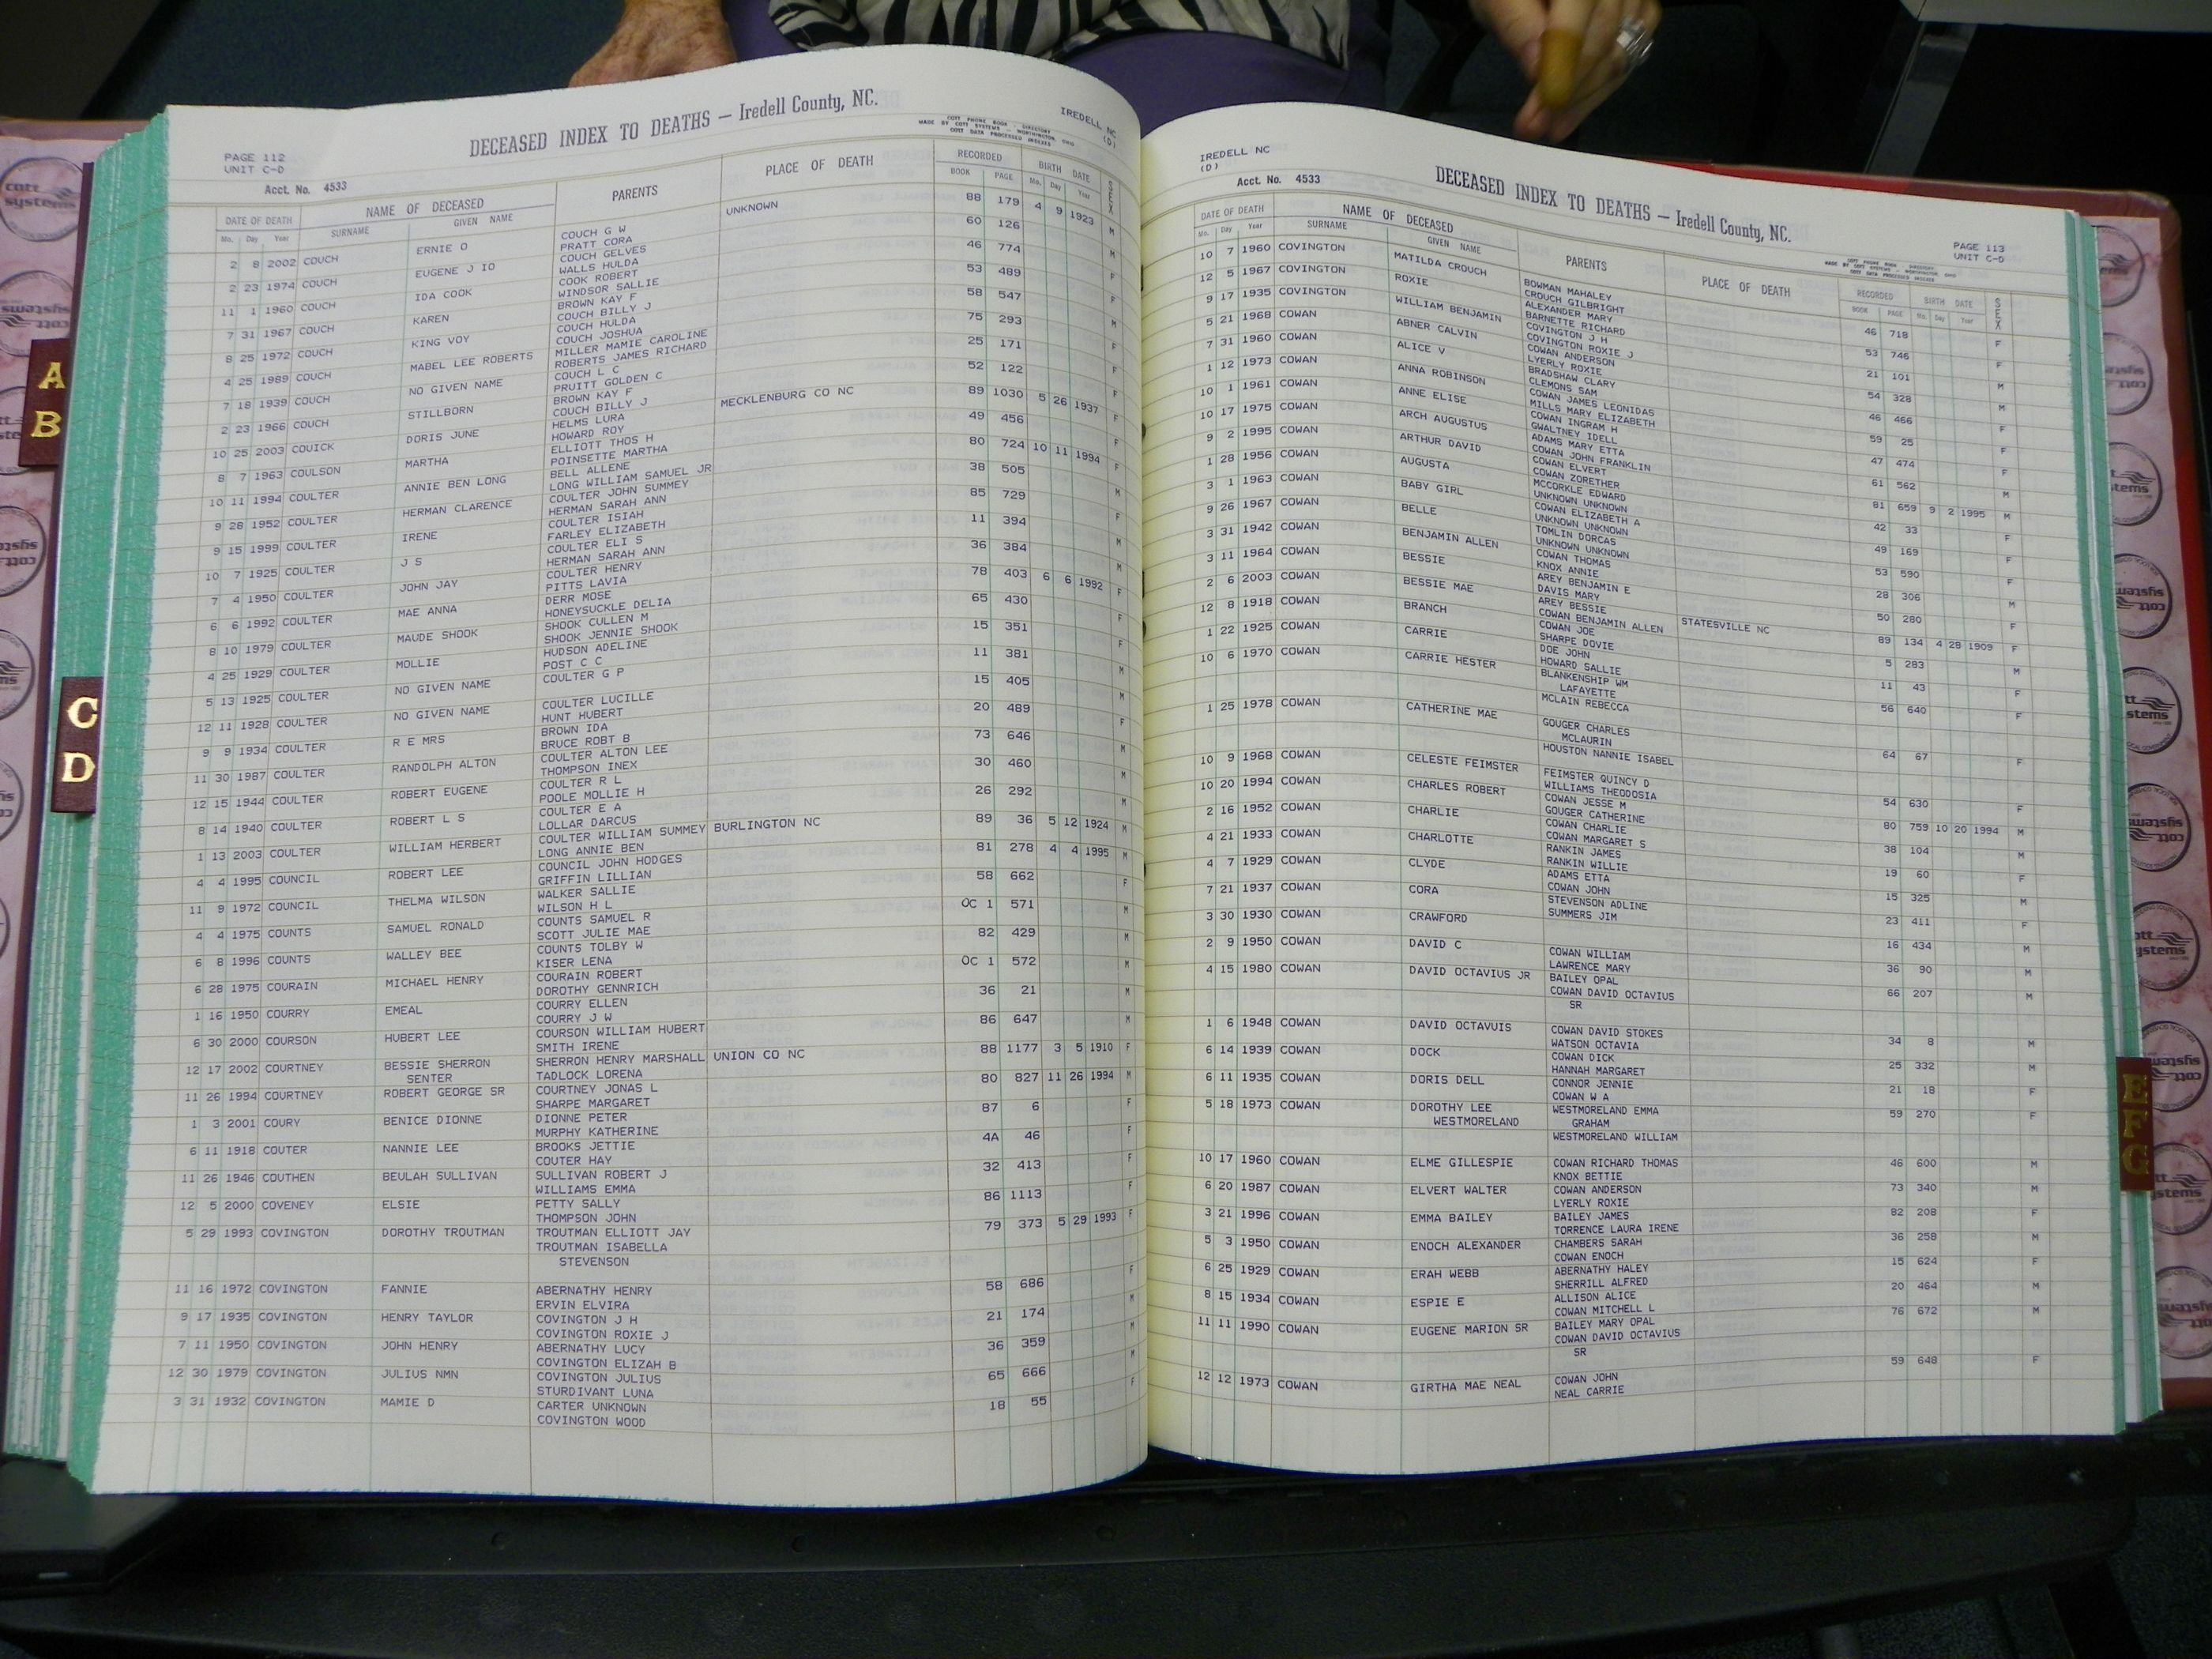 PAGE 112
UNIT C-D
DECEASED INDEX TO DEATHS — Iredell County, NC.
COTT PHONE BOOK - DIRECTORY
MADE BY COTT SYSTEMS - WORTHINGTON, OHIO
COTT DATA PROCESSED INDEXES
IREDELL NC
(D)
Acct. No. 4533
DATE OF DEATH NAME OF DECEASED PARENTS PLACE OF DEATH RECORDED BIRTH DATE SEX
Mo. Day Year SURNAME GIVEN NAME BOOK PAGE Mo. Day Year
2 8 2002 COUCH ERNIE O COUCH G W UNKNOWN 88 179 4 9 1923 M
PRATT CORA
2 23 1974 COUCH EUGENE J IO COUCH GELVES 60 126 M
WALLS HULDA
11 1 1960 COUCH IDA COOK COOK ROBERT 46 774 F
WINDSOR SALLIE
7 31 1967 COUCH KAREN BROWN KAY F 53 489 F
COUCH BILLY J
8 25 1972 COUCH KING VOY COUCH HULDA 58 547 M
COUCH JOSHUA
4 25 1989 COUCH MABEL LEE ROBERTS MILLER MAMIE CAROLINE 75 293 F
ROBERTS JAMES RICHARD
7 18 1939 COUCH NO GIVEN NAME COUCH L C 25 171 F
PRUITT GOLDEN C
2 23 1966 COUCH STILLBORN BROWN KAY F 52 122 F
COUCH BILLY J
10 25 2003 COUICK DORIS JUNE HELMS LURA MECKLENBURG CO NC 89 1030 5 26 1937 F
HOWARD ROY
8 7 1963 COULSON MARTHA ELLIOTT THOS H 49 456
POINSETTE MARTHA
10 11 1994 COULTER ANNIE BEN LONG BELL ALLENE 80 724 10 11 1994 F
LONG WILLIAM SAMUEL JR
9 28 1952 COULTER HERMAN CLARENCE COULTER JOHN SUMMEY 38 505 M
HERMAN SARAH ANN
9 15 1999 COULTER IRENE COULTER ISIAH 85 729 F
FARLEY ELIZABETH
10 7 1925 COULTER J S COULTER ELI S 11 394 M
HERMAN SARAH ANN
7 4 1950 COULTER JOHN JAY COULTER HENRY 36 384 M
PITTS LAVIA
6 6 1992 COULTER MAE ANNA DERR MOSE 78 403 6 6 1992 F
HONEYSUCKLE DELIA
8 10 1979 COULTER MAUDE SHOOK SHOOK CULLEN M 65 430
SHOOK JENNIE SHOOK
4 25 1929 COULTER MOLLIE HUDSON ADELINE 15 351 F
POST C C
5 13 1925 COULTER NO GIVEN NAME COULTER G P 11 381 M
12 11 1928 COULTER NO GIVEN NAME COULTER LUCILLE 15 405 M
HUNT HUBERT
9 9 1934 COULTER R E MRS BROWN IDA 20 489 F
BRUCE ROBT B
11 30 1987 COULTER RANDOLPH ALTON COULTER ALTON LEE 73 646 M
THOMPSON INEX
12 15 1944 COULTER ROBERT EUGENE COULTER R L 30 460 M
POOLE MOLLIE H
8 14 1940 COULTER ROBERT L S COULTER E A 26 292 M
LOLLAR DARCUS
1 13 2003 COULTER WILLIAM HERBERT COULTER WILLIAM SUMMEY BURLINGTON NC 89 36 5 12 1924 M
LONG ANNIE BEN
4 4 1995 COUNCIL ROBERT LEE COUNCIL JOHN HODGES 81 278 4 4 1995 M
GRIFFIN LILLIAN
11 9 1972 COUNCIL THELMA WILSON WALKER SALLIE 58 662 F
WILSON H L
4 4 1975 COUNTS SAMUEL RONALD COUNTS SAMUEL R OC 1 571 M
SCOTT JULIE MAE
6 8 1996 COUNTS WALLEY BEE COUNTS TOLBY W 82 429 M
KISER LENA
6 28 1975 COURAIN MICHAEL HENRY COURAIN ROBERT OC 1 572 M
DOROTHY GENNRICH
1 16 1950 COURRY EMEAL COURRY ELLEN 36 21 M
COURRY J W
6 30 2000 COURSON HUBERT LEE COURSON WILLIAM HUBERT 86 647 M
SMITH IRENE
12 17 2002 COURTNEY BESSIE SHERRON SHERRON HENRY MARSHALL UNION CO NC 88 1177 3 5 1910 F
SENTER TADLOCK LORENA
11 26 1994 COURTNEY ROBERT GEORGE SR COURTNEY JONAS L 80 827 11 26 1994 M
SHARPE MARGARET
1 3 2001 COURY BENICE DIONNE DIONNE PETER 87 6 F
MURPHY KATHERINE
6 11 1918 COUTER NANNIE LEE BROOKS JETTIE 4A 46 F
COUTER HAY
11 26 1946 COUTHEN BEULAH SULLIVAN SULLIVAN ROBERT J 32 413 F
WILLIAMS EMMA
12 5 2000 COVENEY ELSIE PETTY SALLY 86 1113 F
THOMPSON JOHN
5 29 1993 COVINGTON DOROTHY TROUTMAN TROUTMAN ELLIOTT JAY 79 373 5 29 1993 F
TROUTMAN ISABELLA
STEVENSON
11 16 1972 COVINGTON FANNIE ABERNATHY HENRY 58 686 F
ERVIN ELVIRA
9 17 1935 COVINGTON HENRY TAYLOR COVINGTON J H 21 174 M
COVINGTON ROXIE J
7 11 1950 COVINGTON JOHN HENRY ABERNATHY LUCY 36 359 M
COVINGTON ELIZAH B
12 30 1979 COVINGTON JULIUS NMN COVINGTON JULIUS 65 666 M
STURDIVANT LUNA
3 31 1932 COVINGTON MAMIE D CARTER UNKNOWN 18 55 F
COVINGTON WOOD
IREDELL NC
(D)
Acct. No. 4533
DECEASED INDEX TO DEATHS — Iredell County, NC.
COTT PHONE BOOK - DIRECTORY
MADE BY COTT SYSTEMS - WORTHINGTON, OHIO
COTT DATA PROCESSED INDEXES
PAGE 113
UNIT C-D
DATE OF DEATH NAME OF DECEASED PARENTS PLACE OF DEATH RECORDED BIRTH DATE SEX
Mo. Day Year SURNAME GIVEN NAME BOOK PAGE Mo. Day Year
10 7 1960 COVINGTON MATILDA CROUCH BOWMAN MAHALEY 46 718 F
CROUCH GILBRIGHT
12 5 1967 COVINGTON ROXIE ALEXANDER MARY 53 746 F
BARNETTE RICHARD
9 17 1935 COVINGTON WILLIAM BENJAMIN COVINGTON J H 21 101 M
COVINGTON ROXIE J
5 21 1968 COWAN ABNER CALVIN COWAN ANDERSON 54 328 M
LYERLY ROXIE
7 31 1960 COWAN ALICE V BRADSHAW CLARY 46 466 F
CLEMONS SAM
1 12 1973 COWAN ANNA ROBINSON COWAN JAMES LEONIDAS 59 25 F
MILLS MARY ELIZABETH
10 1 1961 COWAN ANNE ELISE COWAN INGRAM H 47 474 F
GWALTNEY IDELL
10 17 1975 COWAN ARCH AUGUSTUS ADAMS MARY ETTA 61 562 M
COWAN JOHN FRANKLIN
9 2 1995 COWAN ARTHUR DAVID COWAN ELVERT 81 659 9 2 1995 M
COWAN ZORETHER
1 28 1956 COWAN AUGUSTA MCCORKLE EDWARD 42 33 F
UNKNOWN UNKNOWN
3 1 1963 COWAN BABY GIRL COWAN ELIZABETH A 49 169 F
UNKNOWN UNKNOWN
9 26 1967 COWAN BELLE TOMLIN DORCAS 53 590 F
UNKNOWN UNKNOWN
3 31 1942 COWAN BENJAMIN ALLEN COWAN THOMAS 28 306 M
KNOX ANNIE
3 11 1964 COWAN BESSIE AREY BENJAMIN E 50 280 F
DAVIS MARY
2 6 2003 COWAN BESSIE MAE AREY BESSIE STATESVILLE NC 89 134 4 28 1909 F
COWAN BENJAMIN ALLEN
12 8 1918 COWAN BRANCH COWAN JOE 5 283 M
SHARPE DOVIE
1 22 1925 COWAN CARRIE DOE JOHN 11 43 F
HOWARD SALLIE
10 6 1970 COWAN CARRIE HESTER BLANKENSHIP WM 56 640 F
LAFAYETTE
MCLAIN REBECCA
1 25 1978 COWAN CATHERINE MAE GOUGER CHARLES 64 67 F
MCLAURIN
HOUSTON NANNIE ISABEL
10 9 1968 COWAN CELESTE FEIMSTER FEIMSTER QUINCY D 54 630 F
WILLIAMS THEODOSIA
10 20 1994 COWAN CHARLES ROBERT COWAN JESSE M 80 759 10 20 1994 M
GOUGER CATHERINE
2 16 1952 COWAN CHARLIE COWAN CHARLIE 38 104 M
COWAN MARGARET S
4 21 1933 COWAN CHARLOTTE RANKIN JAMES 19 60 F
RANKIN WILLIE
4 7 1929 COWAN CLYDE ADAMS ETTA 15 325 M
COWAN JOHN
7 21 1937 COWAN CORA STEVENSON ADLINE 23 411 F
SUMMERS JIM
3 30 1930 COWAN CRAWFORD 16 434 M
2 9 1950 COWAN DAVID C COWAN WILLIAM 36 90 M
LAWRENCE MARY
4 15 1980 COWAN DAVID OCTAVIUS JR BAILEY OPAL 66 207 M
COWAN DAVID OCTAVIUS
SR
1 6 1948 COWAN DAVID OCTAVUIS COWAN DAVID STOKES 34 8 M
WATSON OCTAVIA
6 14 1939 COWAN DOCK COWAN DICK 25 332 M
HANNAH MARGARET
6 11 1935 COWAN DORIS DELL CONNOR JENNIE 21 18 F
COWAN W A
5 18 1973 COWAN DOROTHY LEE WESTMORELAND EMMA 59 270 F
WESTMORELAND GRAHAM
WESTMORELAND WILLIAM
10 17 1960 COWAN ELME GILLESPIE COWAN RICHARD THOMAS 46 600 M
KNOX BETTIE
6 20 1987 COWAN ELVERT WALTER COWAN ANDERSON 73 340 M
LYERLY ROXIE
3 21 1996 COWAN EMMA BAILEY BAILEY JAMES 82 208 F
TORRENCE LAURA IRENE
5 3 1950 COWAN ENOCH ALEXANDER CHAMBERS SARAH 36 259 M
COWAN ENOCH
6 25 1929 COWAN ERAH WEBB ABERNATHY HALEY 15 624 F
SHERRILL ALFRED
8 15 1934 COWAN ESPIE E ALLISON ALICE 20 464 M
COWAN MITCHELL L
11 11 1990 COWAN EUGENE MARION SR BAILEY MARY OPAL 76 672 M
COWAN DAVID OCTAVIUS
SR
12 12 1973 COWAN GIRTHA MAE NEAL COWAN JOHN 59 648 F
NEAL CARRIE
A
B
C
D
E
F
G
cott
systems